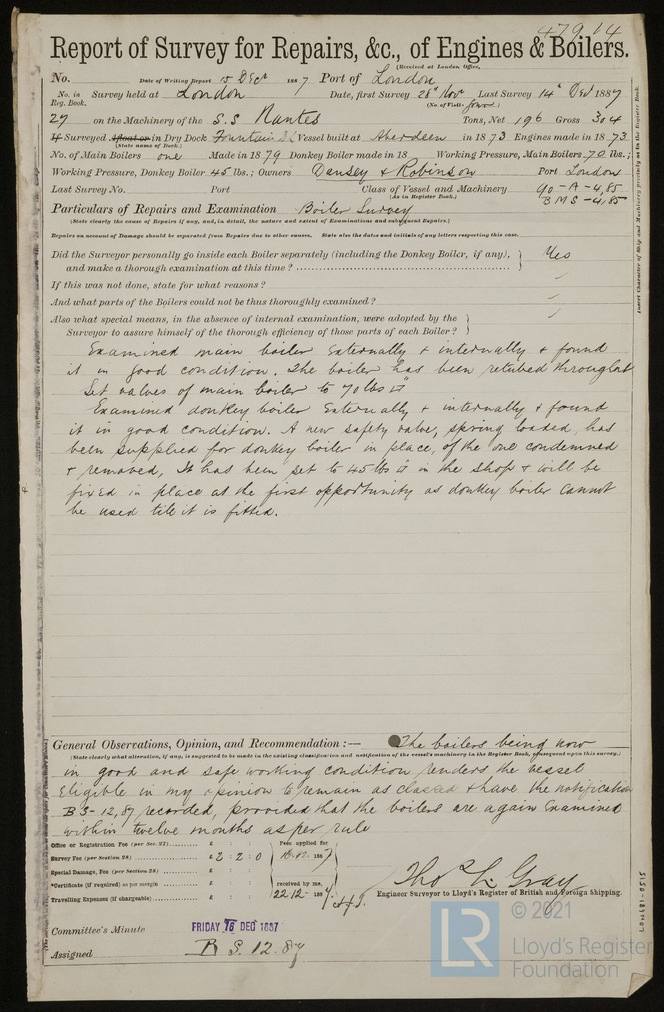 47914
Report of Survey for Repairs, &c., of Engines & Boilers.
(Received at London Office,
No. Date of Writing Report 15 Decr 1887 Port of London
No. in Reg. Book. Survey held at London Date, first Survey 28th Novr Last Survey 14th Decr 1887
(No. of Visits, four.)
27 on the Machinery of the S.S. Nantes Tons, Net 196 Gross 304
If Surveyed Afloat or in Dry Dock Fountain Vessel built at Aberdeen in 1873 Engines made in 1873
(State name of Dock.)
No. of Main Boilers one Made in 1879 Donkey Boiler made in 18 Working Pressure, Main Boilers 70 lbs.;
Working Pressure, Donkey Boiler 45 lbs.; Owners Dansey & Robinson Port London
Last Survey No. Port Class of Vessel and Machinery 90-A-4,85
(As in Register Book.) BMS-4,85
Particulars of Repairs and Examination Boiler Survey
(State clearly the cause of Repairs if any, and, in detail, the nature and extent of Examinations and subsequent Repairs.)
Repairs on account of Damage should be separated from Repairs due to other causes. State also the dates and initials of any letters respecting this case.
Did the Surveyor personally go inside each Boiler separately (including the Donkey Boiler, if any), Yes
and make a thorough examination at this time?
If this was not done, state for what reasons?
And what parts of the Boilers could not be thus thoroughly examined?
Also what special means, in the absence of internal examination, were adopted by the
Surveyor to assure himself of the thorough efficiency of those parts of each Boiler?
Examined main boiler externally & internally & found
it in good condition. The boiler has been retubed throughout
Set valves of main boiler to 70 lbs □"
Examined donkey boiler externally & internally & found
it in good condition. A new safety valve, spring loaded, has
been supplied for donkey boiler in place, of the one condemned
& removed, It has been set to 45 lbs □" in the shop & will be
fixed in place at the first opportunity as donkey boiler cannot
be used till it is fitted.
General Observations, Opinion, and Recommendation :— The boilers being now
(State clearly what alteration, if any, is suggested to be made in the existing classification and notification of the vessel's machinery in the Register Book, consequent upon this survey.)
in good and safe working condition renders the vessel
Eligible in my opinion to remain as classed & have the notification
BS-12,87 recorded, provided that the boilers are again Examined
within twelve months as per rule
Office or Registration Fee (per Sec. 27) £ : :
Survey Fee (per Section 28) £ 2 : 2 : 0
Special Damage, Fee (per Section 28) £ : :
*Certificate (if required) as per margin £ : :
Travelling Expenses (if chargeable) £ : :
Fees applied for
16.12.1887
received by me,
22.12.1887
Thos L. Gray
Engineer Surveyor to Lloyd's Register of British and Foreign Shipping.
Committee's Minute FRIDAY 16 DEC 1887
Assigned B S. 12.87
Insert Character of Ship and Machinery precisely as in the Register Book.
LON681-0515
© 2021
LR
Lloyd's Register
Foundation